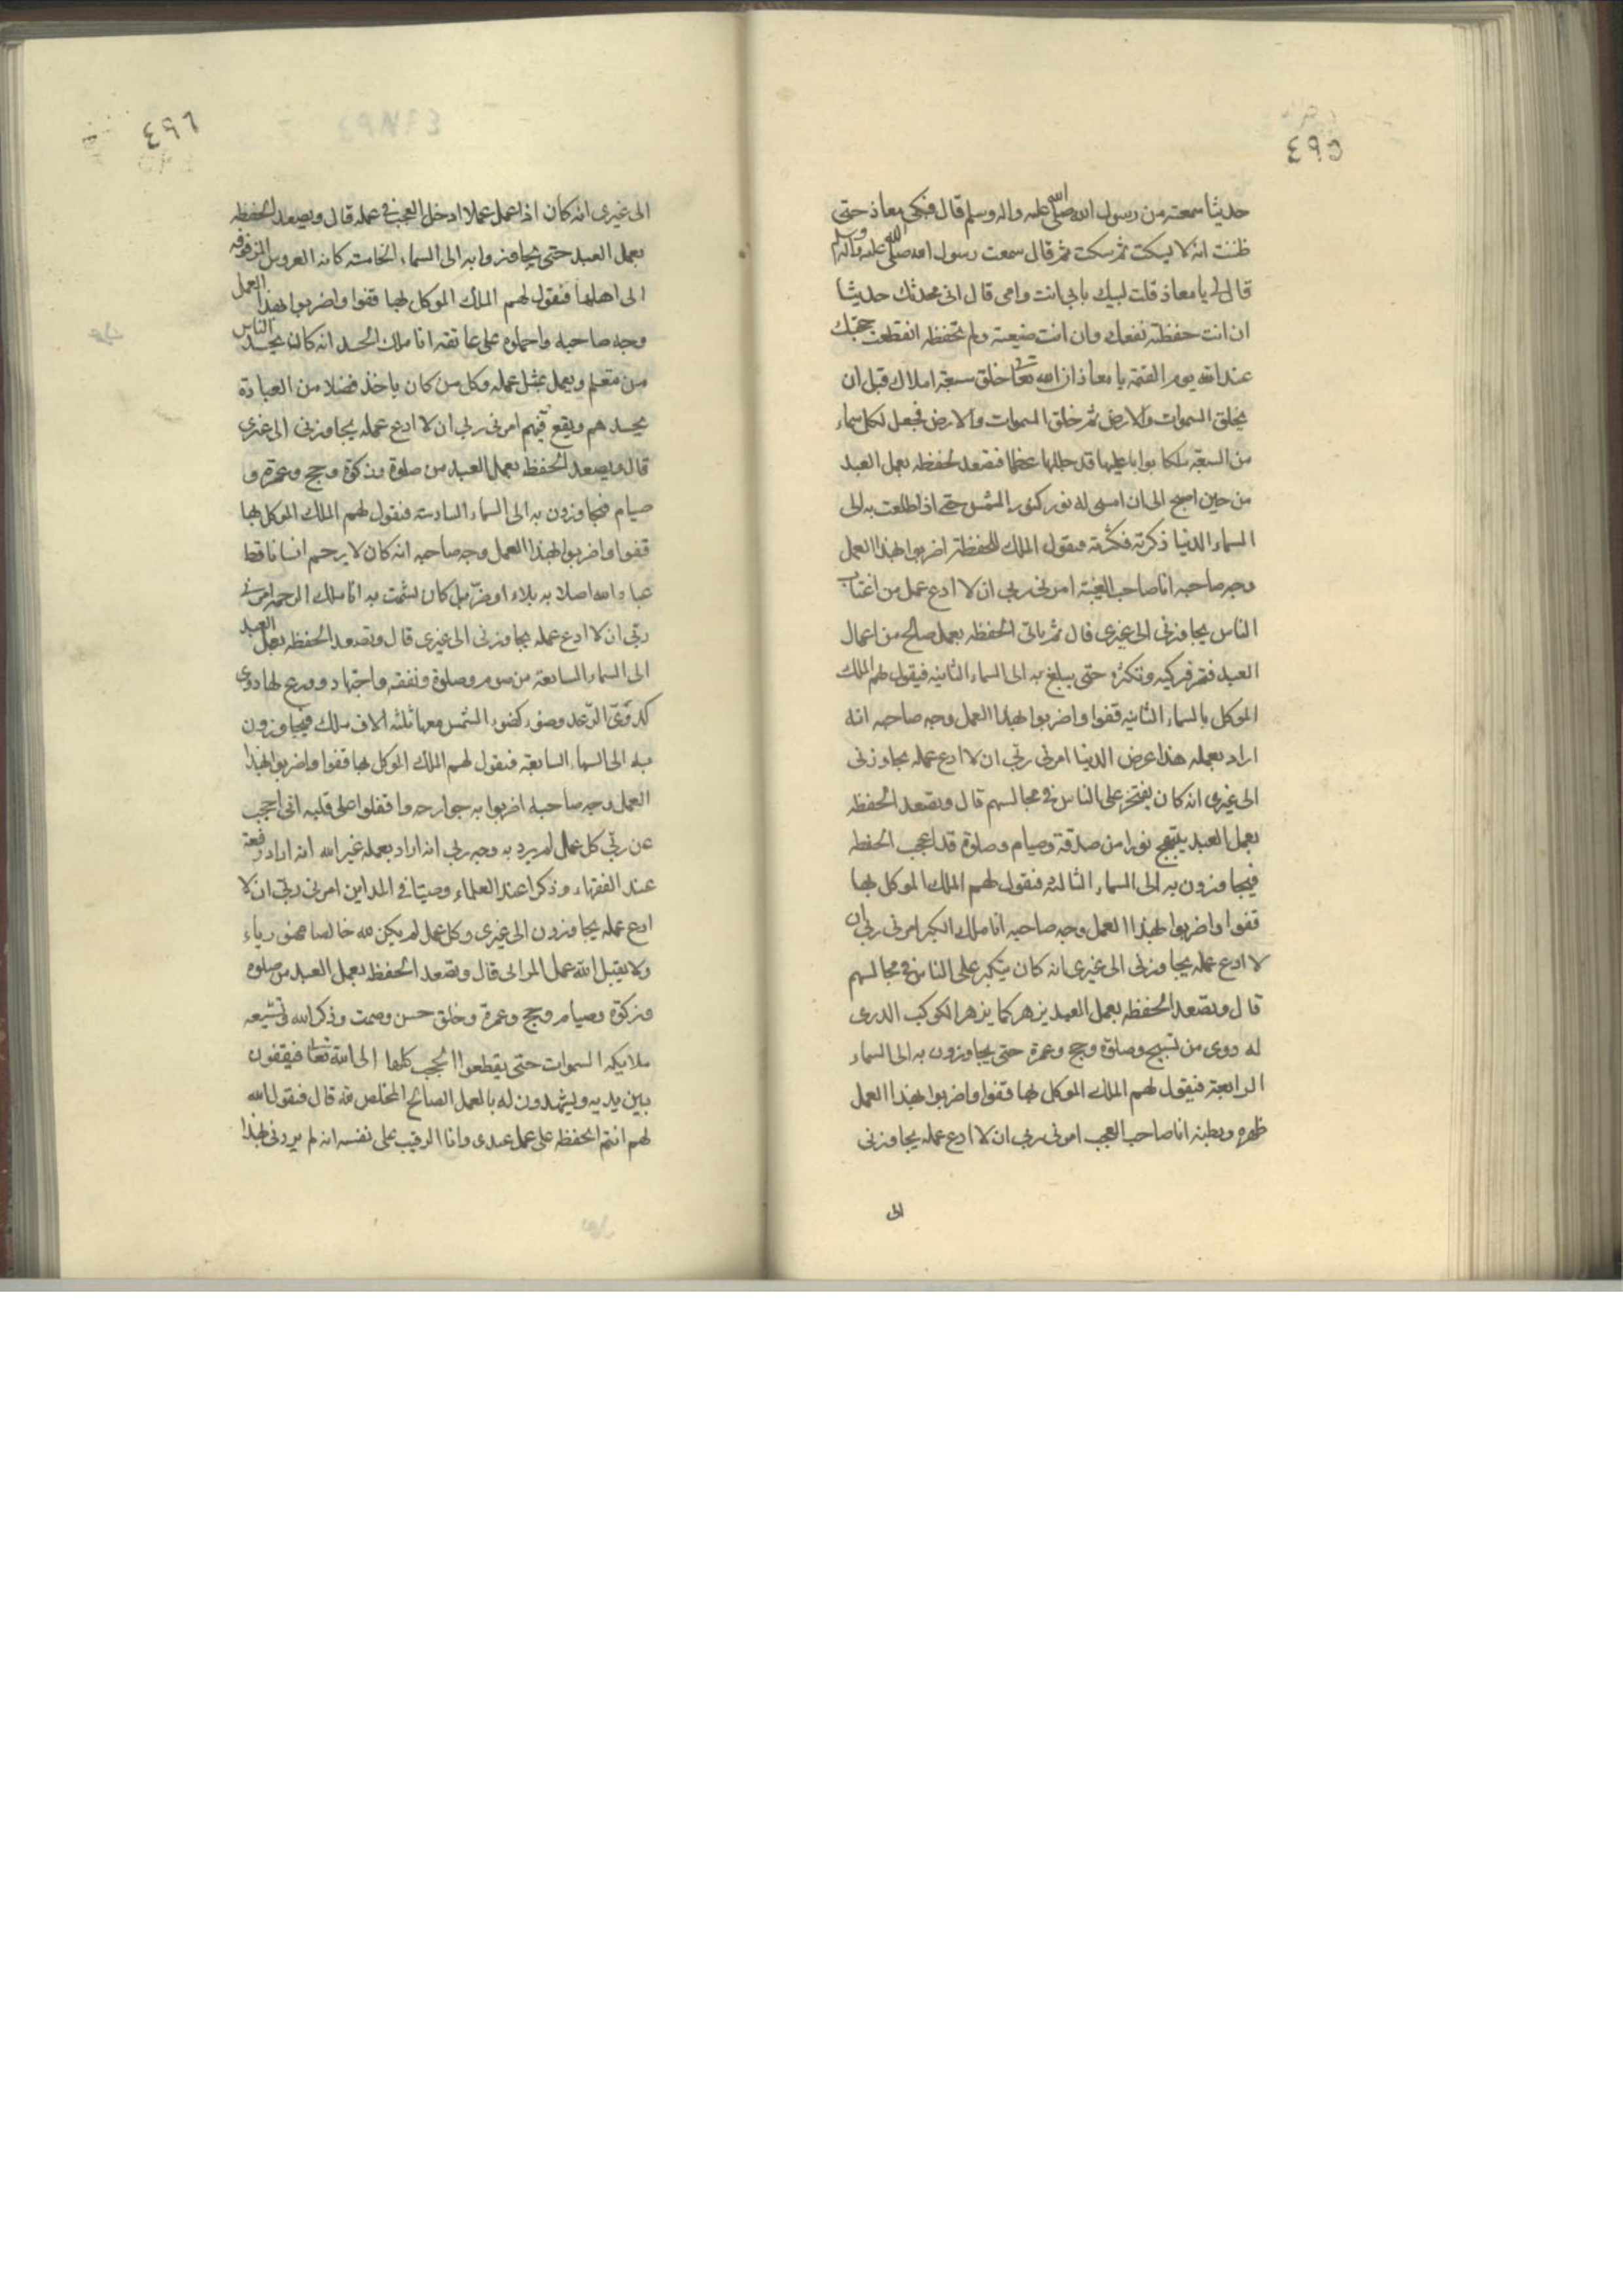 ٤٩٥
حديثا سمعته من رسول الله صلى الله عليه واله وسلم قال فبكى معاذ حتى
ظننت انه لا يسكت ثم سكت ثم قال سمعت رسول الله صلى الله عليه واله وسلم
قال لى يا معاذ قلت لبيك بابى انت وامى قال انى محدثك حديثا
ان انت حفظته نفعك وان انت ضيعته ولم تحفظه انقطعت حجتك
عند الله يوم القيمة يا معاذ ان الله تعالى خلق سبعة املاك قبل ان
يخلق السموات والارض ثم خلق السموات والارض فجعل لكل سماء
من السبعة ملكا بوابا عليها قد جللها عظما فتصعد لحفظه بعمل العبد
من حين اصبح الى ان امسى له نور كنور الشمس حتى اذا طلعت به الى
السماء الدنيا ذكرته فكثرته فيقول الملك للحفظة اضربوا بهذا العمل
وجه صاحبه انا صاحب الغيبة امرنى ربى ان لا ادع عمل من اغتاب
الناس يجاوزنى الى غيرى قال ثم ياتى الحفظه بعمل صالح من اعمال
العبد فتمر فتزكيه وتكثره حتى يبلغ به الى السماء الثانيه فيقول لهم الملك
الموكل بالسماء الثانيه قفوا واضربوا بهذا العمل وجه صاحبه انه
اراد بعمله هذا عرض الدنيا امرنى ربى ان لا ادع عمله يجاوزنى
الى غيرى انه كان يفتخر على الناس فى مجالسهم قال وتصعد الحفظه
بعمل العبد يبتهج نورا من صدقة وصيام وصلوة قد اعجب الحفظه
فيجاوزون به الى السماء الثالثه فيقول لهم الملك الموكل بها
قفوا واضربوا بهذا العمل وجه صاحبه انا ملك الكبر امرنى ربى ان
لا ادع عمله يجاوزنى الى غيرى انه كان يتكبر على الناس فى مجالسهم
قال وتصعد الحفظه بعمل العبد يزهر كما يزهر الكوكب الدرى
له دوى من تسبيح وصلوة وحج وعمرة حتى يجاوزون به الى السماء
الرابعة فيقول لهم الملك الموكل بها قفوا واضربوا بهذا العمل
ظهره وبطنه انا صاحب العجب امرنى ربى ان لا ادع عمله يجاوزنى
الى
٤٩٦
الى غيرى انه كان اذا عمل عملا ادخل العجب فى عمله قال ويصعد الحفظه
بعمل العبد حتى يجاوزوا به الى السماء الخامسه كانه العروس المزفوفه
الى اهلها فيقول لهم الملك الموكل بها قفوا واضربوا بهذا العمل
وجه صاحبه واحملوه على عاتقه انا ملك الحسد انه كان يحسد الناس
من يتعلم ويعمل بمثل عمله وكل من كان ياخذ فضلا من العبادة
يحسدهم ويقع فيهم امرنى ربى ان لا ادع عمله يجاوزنى الى غيرى
قال ويصعد الحفظه بعمل العبد من صلوة وزكوة وحج وعمرة و
صيام فيجاوزون به الى السماء السادسة فيقول لهم الملك الموكل بها
قفوا واضربوا بهذا العمل وجه صاحبه انه كان لا يرحم انسانا قط
عباد الله اصلا به بلاء او ضر بل كان يشمت به انا ملك الرحمه امرنى
ربى ان لا ادع عمله يجاوزنى الى غيرى قال وتصعد الحفظه بعمل العبد
الى السماء السابعة من صوم وصلوة ونفقه واجتهاد وورع لها دوى
كدوى الرعد وضوء كضوء الشمس معها ثلثه الاف ملك فيجاوزون
به الى السماء السابعة فيقول لهم الملك الموكل بها قفوا واضربوا بهذا
العمل وجه صاحبه اضربوا به جوارحه واقفلوا على قلبه انى احجب
عن ربى كل عمل لم يرد به وجه ربى انه اراد بعمله غير الله انه اراد رفعة
عند الفقهاء وذكرا عند العلماء وصيتا فى المداين امرنى ربى ان لا
ادع عمله يجاوزون الى غيرى وكل عمل لم يكن لله خالصا فهو رياء
ولا يقبل الله عمل المرائى قال وتصعد الحفظه بعمل العبد من صلوه
وزكوة وصيام وحج وعمرة وخلق حسن وصمت وذكر الله وتشيعه
ملايكه السموات حتى يقطعوا الحجب كلها الى الله تعالى فيقفون
بين يديه ويشهدون له بالعمل الصالح المخلص لله قال فيقول الله
لهم انتم الحفظه على عمل عبدى وانا الرقيب على نفسه انه لم يردنى بهذا